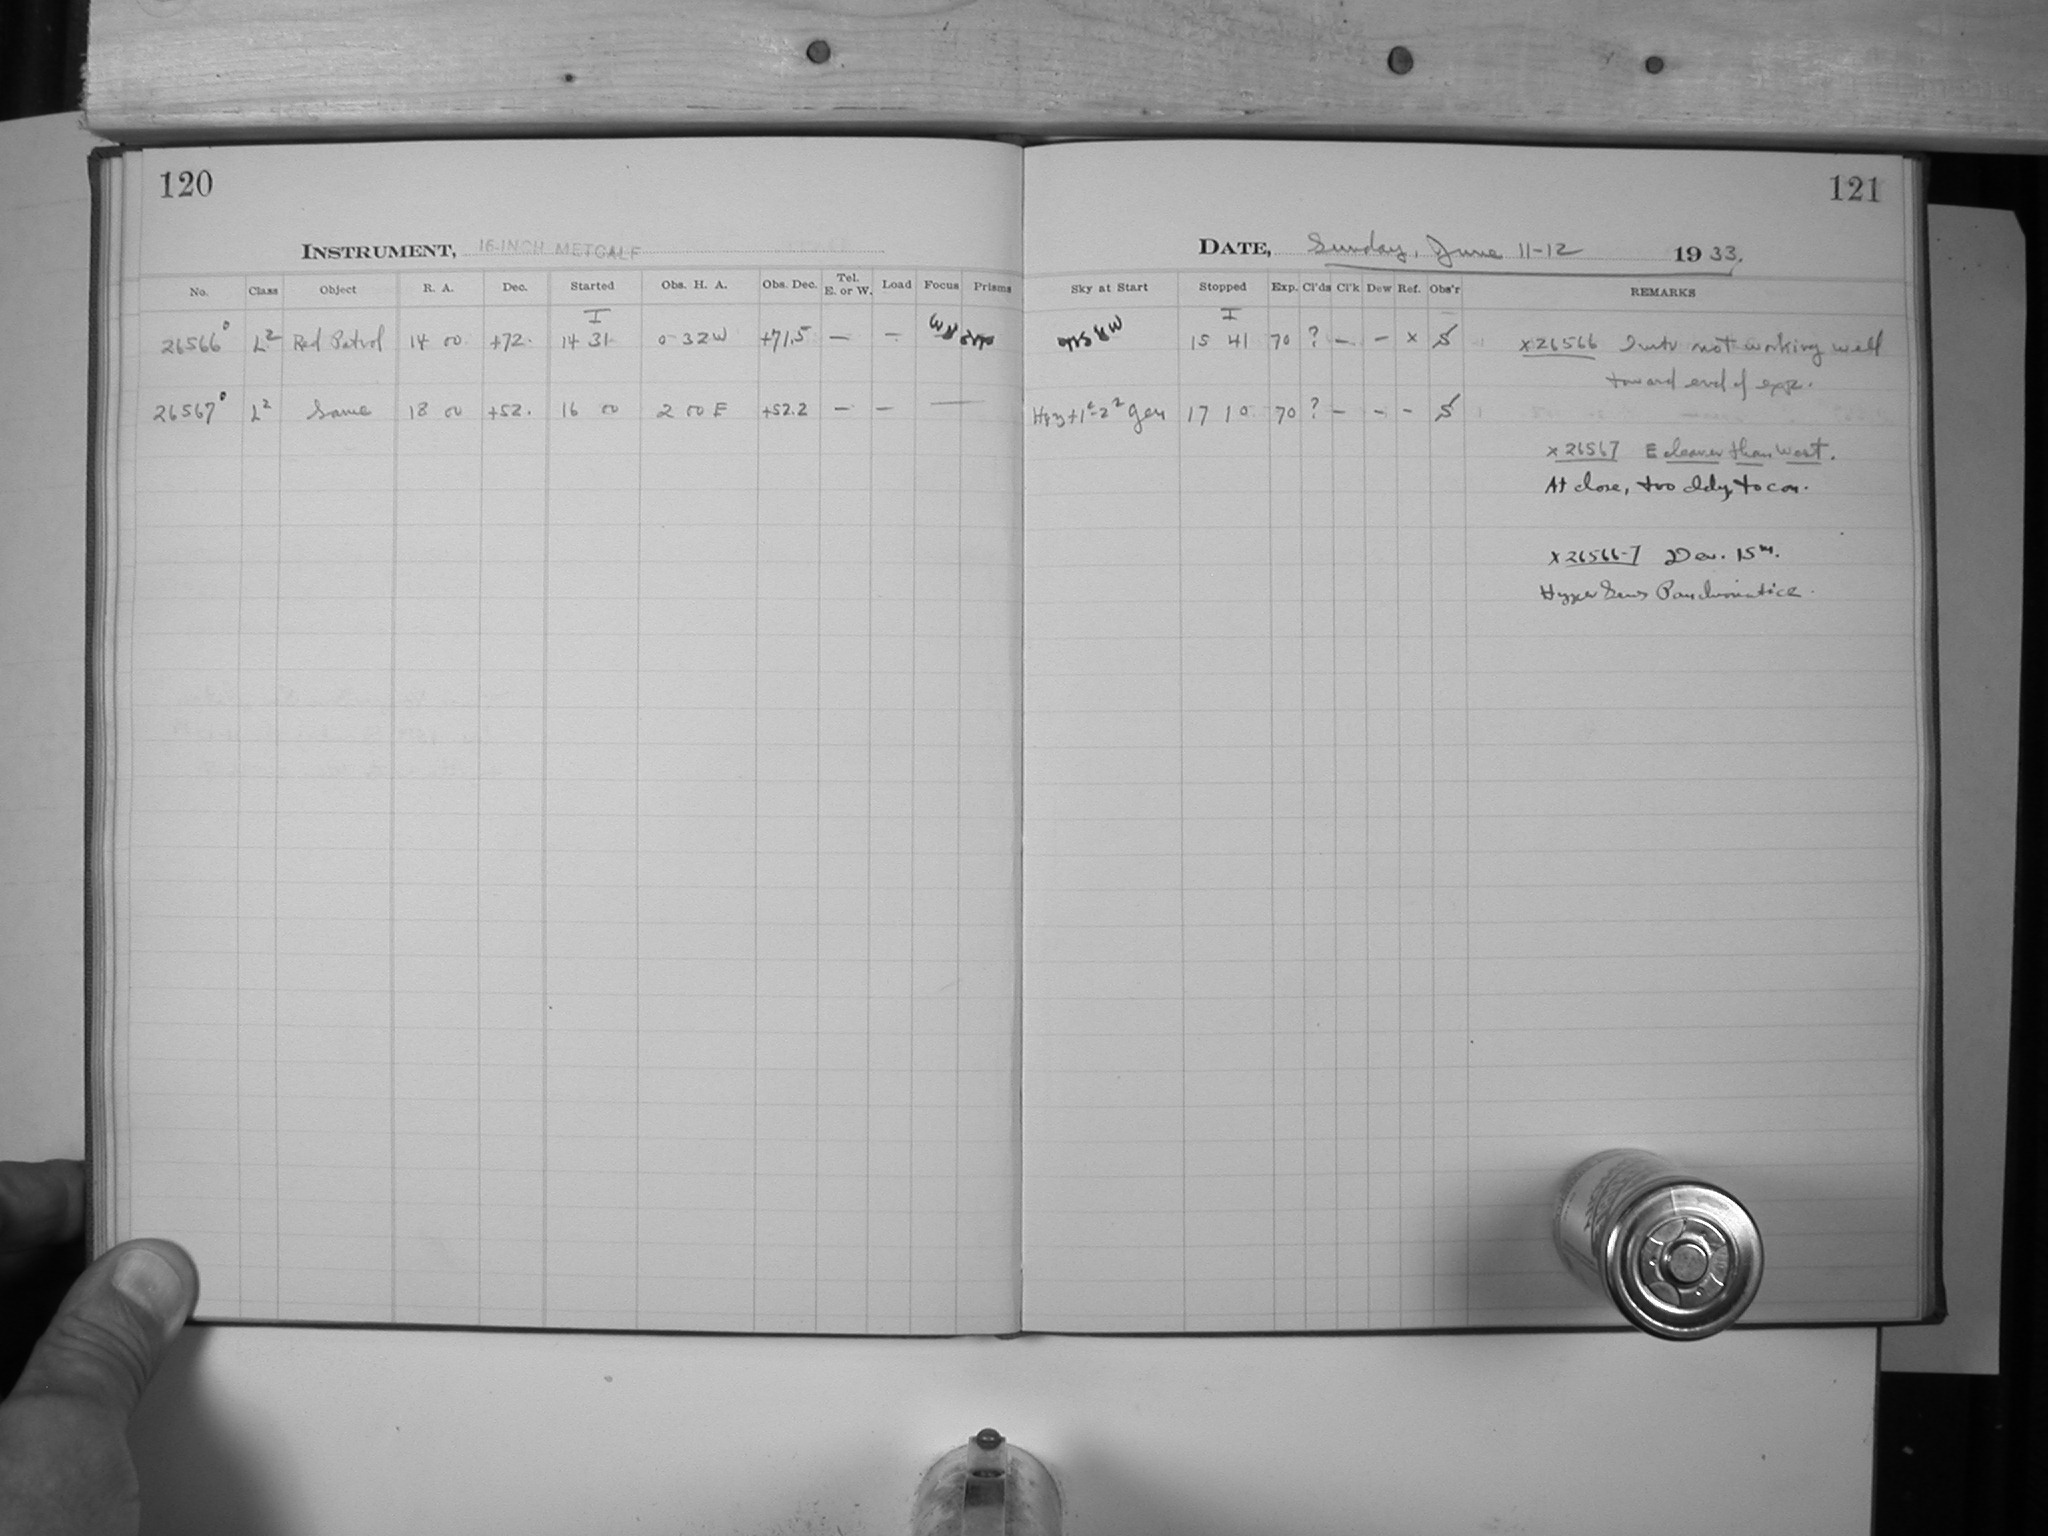 120
121
INSTRUMENT, 16-INCH METCALF
DATE, Sunday, June 11-12 1933.
No. Class Object R. A. Dec. Started Obs. H. A. Obs. Dec. Tel. E. or W. Load Focus Prisms Sky at Start Stopped Exp. Cl'ds Cl'k Dew Ref. Obs'r REMARKS
I I
26566° L² Red Patrol 14 00 +72. 14 31 0 32 W +71.5 — — 15 41 70 ? — — x S
x26566 not working well
toward end of exp.
26567° L² Same 18 00 +52. 16 00 2 00 E +52.2 — — — 17 10 70 ? — — — S
x26567 E clearer than West.
At close, too cldy, to con.
x26566-7 Dev. 15m.
Hyper Sens Panchromatics.